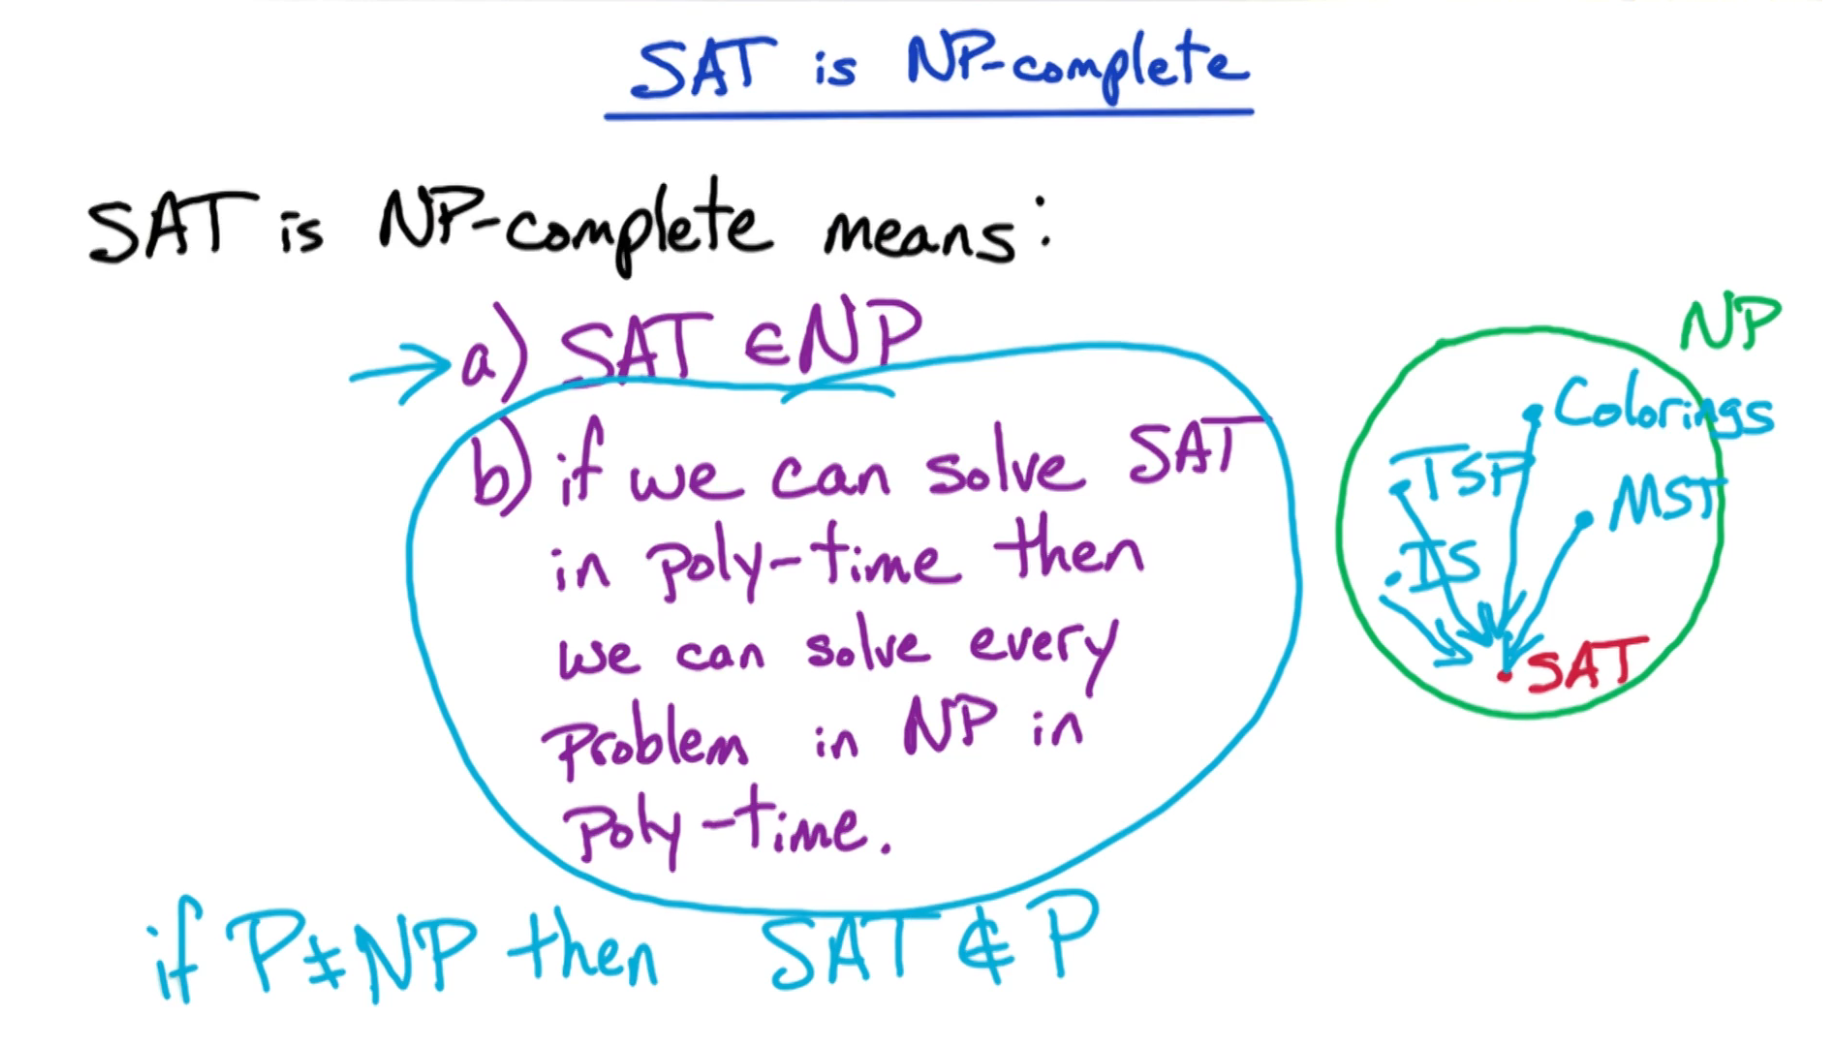 SAT is NP-complete
SAT is NP-complete means:
a) SAT ∈ NP
b) if we can solve SAT
in poly-time then
we can solve every
problem in NP in
poly-time.
if P≠NP then SAT ∉ P
NP
Colorings
TSP
MST
IS
SAT